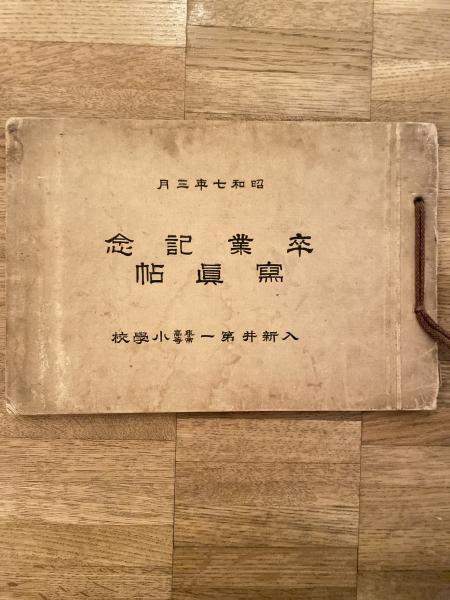 昭和七年三月
卒業記念
寫眞帖
入新井第一尋常高等小學校